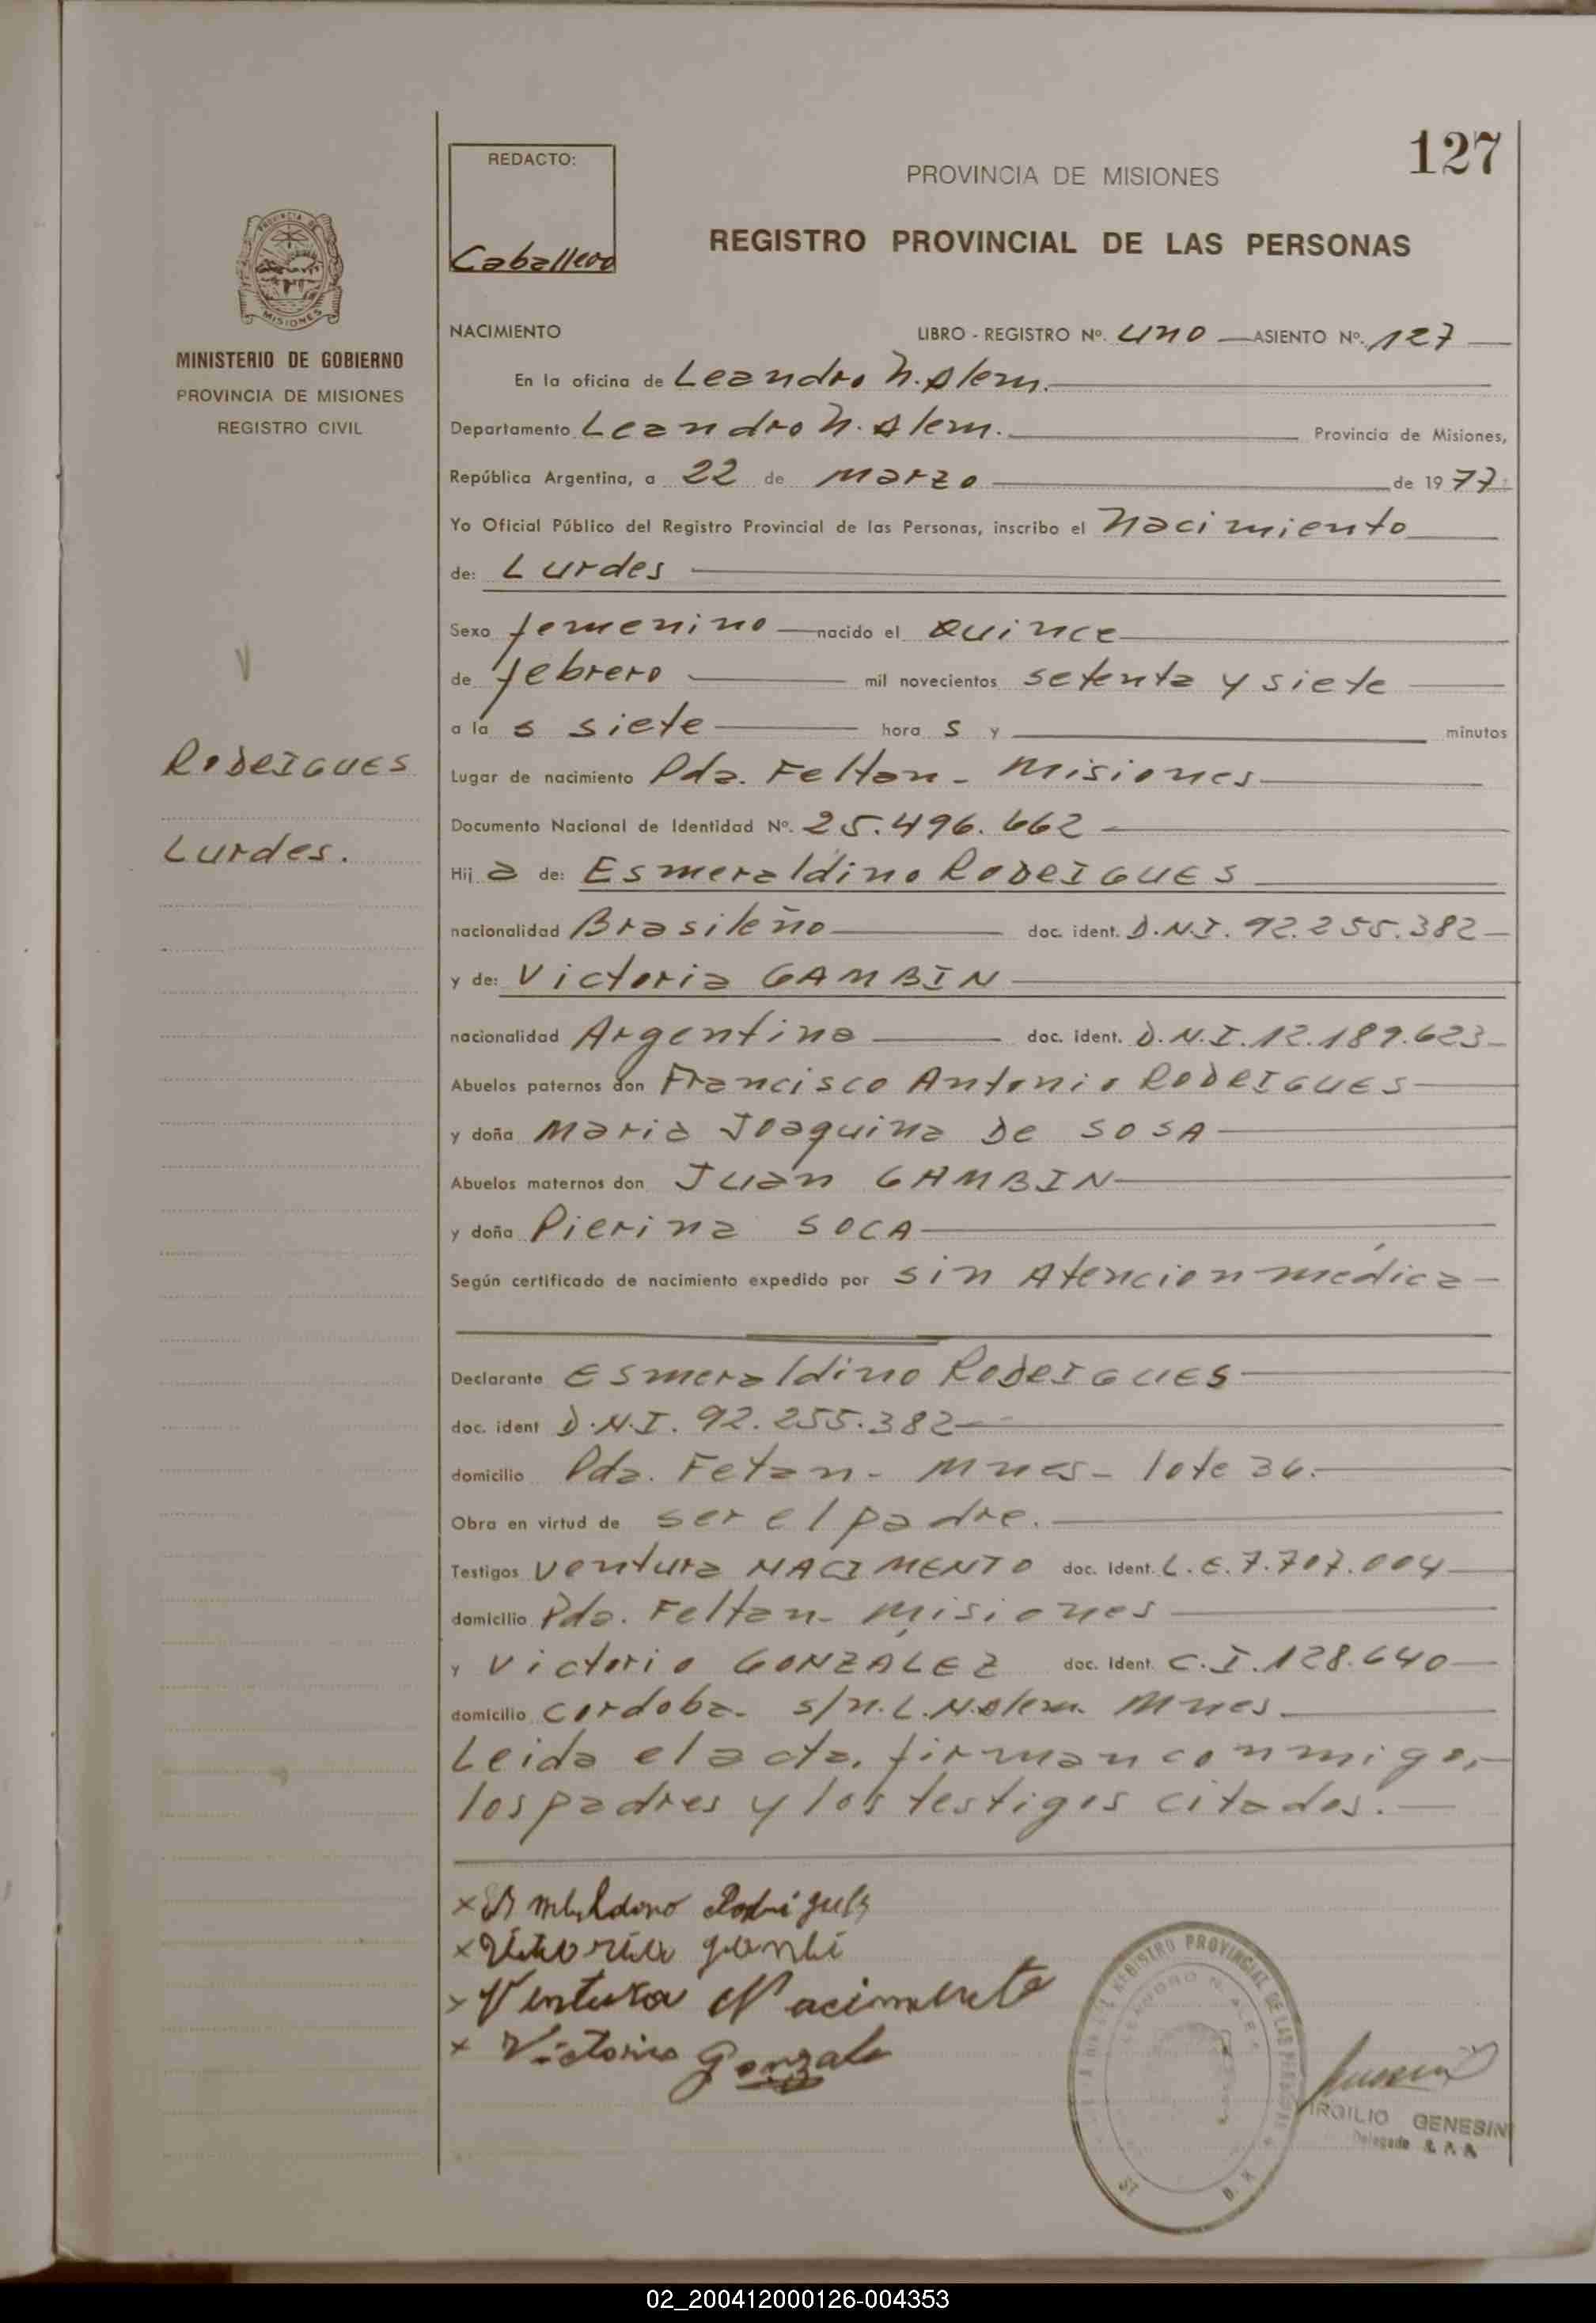 127
REDACTO:
Caballero
PROVINCIA DE MISIONES
REGISTRO PROVINCIAL DE LAS PERSONAS
MISIONES
MINISTERIO DE GOBIERNO
PROVINCIA DE MISIONES
REGISTRO CIVIL
RODRIGUES
Lurdes.
NACIMIENTO LIBRO - REGISTRO Nº. uno ASIENTO Nº. 127
En la oficina de Leandro N. Alem.
Departamento Leandro N. Alem. Provincia de Misiones,
República Argentina, a 22 de marzo de 1977
Yo Oficial Público del Registro Provincial de las Personas, inscribo el Nacimiento
de: Lurdes
Sexo femenino nacido el quince
de febrero mil novecientos setenta y siete
a la s siete hora s y minutos
Lugar de nacimiento Pda. Feltan - Misiones
Documento Nacional de Identidad Nº. 25.496.662
Hij a de: Esmeraldino RODRIGUES
nacionalidad Brasileño doc. ident. D.N.I. 92.255.382
y de: Victoria GAMBIN
nacionalidad Argentina doc. ident. D.N.I. 12.189.623
Abuelos paternos don Francisco Antonio RODRIGUES
y doña Maria Joaquina De SOSA
Abuelos maternos don Juan GAMBIN
y doña Pierina SOCA
Según certificado de nacimiento expedido por sin Atencion médica
Declarante Esmeraldino RODRIGUES
doc. ident D.N.I. 92.255.382
domicilio Pda. Fetan - Mnes - lote 36.
Obra en virtud de ser el padre.
Testigos Ventura NACIMENTO doc. Ident. L.E. 7.707.004
domicilio Pda. Feltan - Misiones
y Victorio GONZÁLEZ doc. Ident. C.I. 128.640
domicilio cordoba - s/n. L.N.Alem. Mnes.
Leida el acta, firman conmigo,
los padres y los testigos citados.
x Rodrigues
x
x Ventura Nacimento
x Victorino Gonzale
REGISTRO PROVINCIAL DE LAS PERSONAS
LEANDRO N. ALEM
VIRGILIO GENESINI
Delegado R. P. P.
02_200412000126-004353